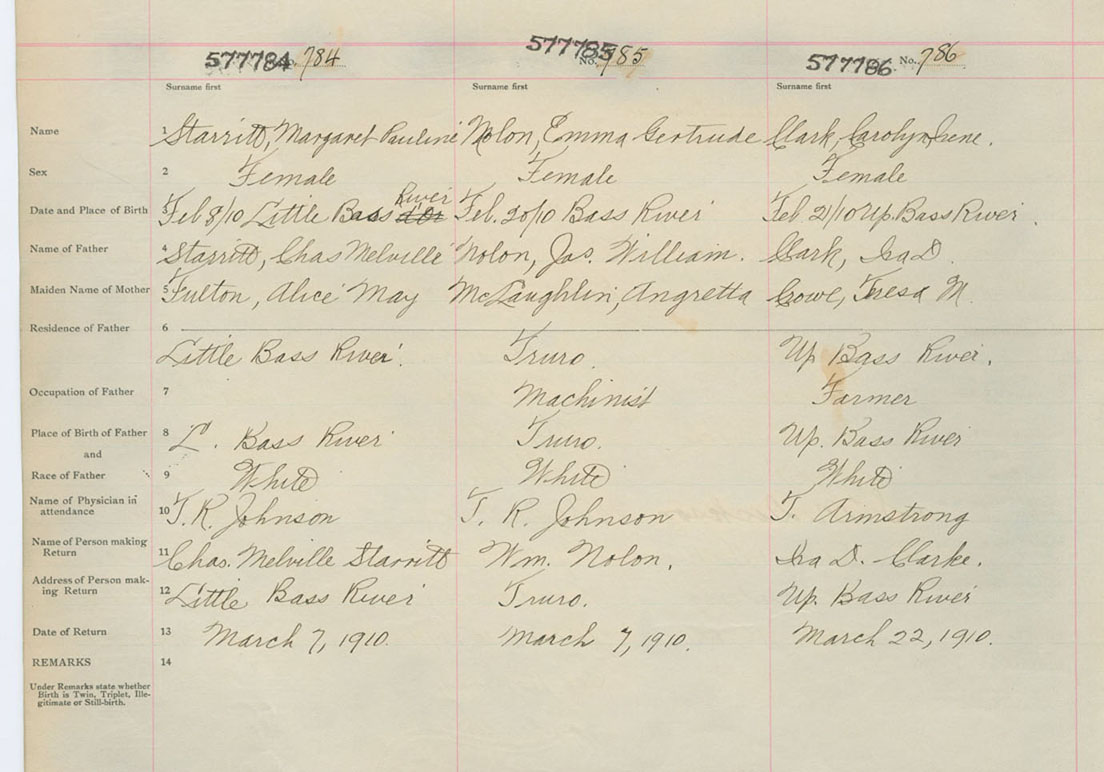 577784 No. 784 577785 No. 785 577786 No. 786
Surname first Surname first Surname first
Name 1 Starritt, Margaret Pauline Nolon, Emma Gertrude Clark, Carolyn Irene.
Sex 2 Female Female Female
Date and Place of Birth 3 Feb 8/10 Little Bass River Feb. 20/10 Bass River Feb 21/10 Up. Bass River.
Name of Father 4 Starritt, Chas Melville Nolon, Jas. William. Clark, Ira D.
Maiden Name of Mother 5 Fulton, Alice May McLaughlin, Angretta Cowe, Teresa M.
Residence of Father 6
Little Bass River. Truro. Up Bass River.
Occupation of Father 7 Machinist Farmer
Place of Birth of Father 8 L. Bass River Truro. Up. Bass River
and
Race of Father 9 White White White
Name of Physician in
attendance 10 T. R. Johnson T. R. Johnson T. Armstrong
Name of Person making
Return 11 Chas. Melville Starritt Wm. Nolon. Ira D. Clarke.
Address of Person mak-
ing Return 12 Little Bass River Truro. Up. Bass River
Date of Return 13 March 7, 1910. March 7, 1910. March 22, 1910.
REMARKS 14
Under Remarks state whether
Birth is Twin, Triplet, Ille-
gitimate or Still-birth.